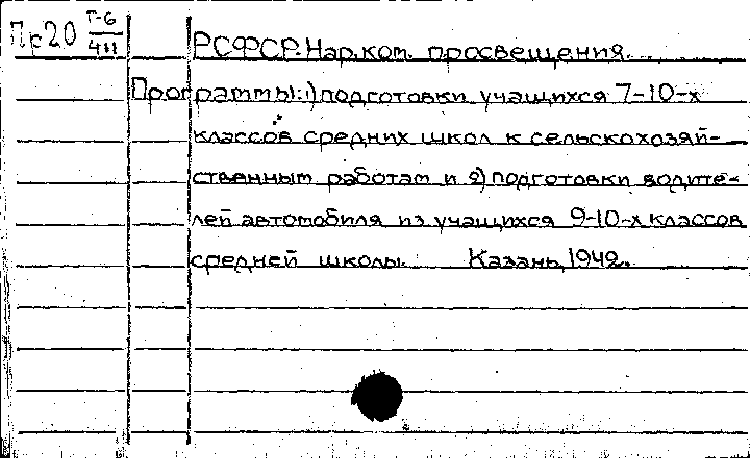 Пр20 Т-6/411
РСФСР. Нар. ком. просвещения.
Программы: 1) подготовки учащихся 7-10-х
классов средних школ к сельскохозяй-
ственным работам и 2) подготовки водите-
лей автомобиля из учащихся 9-10-х классов
средней школы. Казань, 1942.